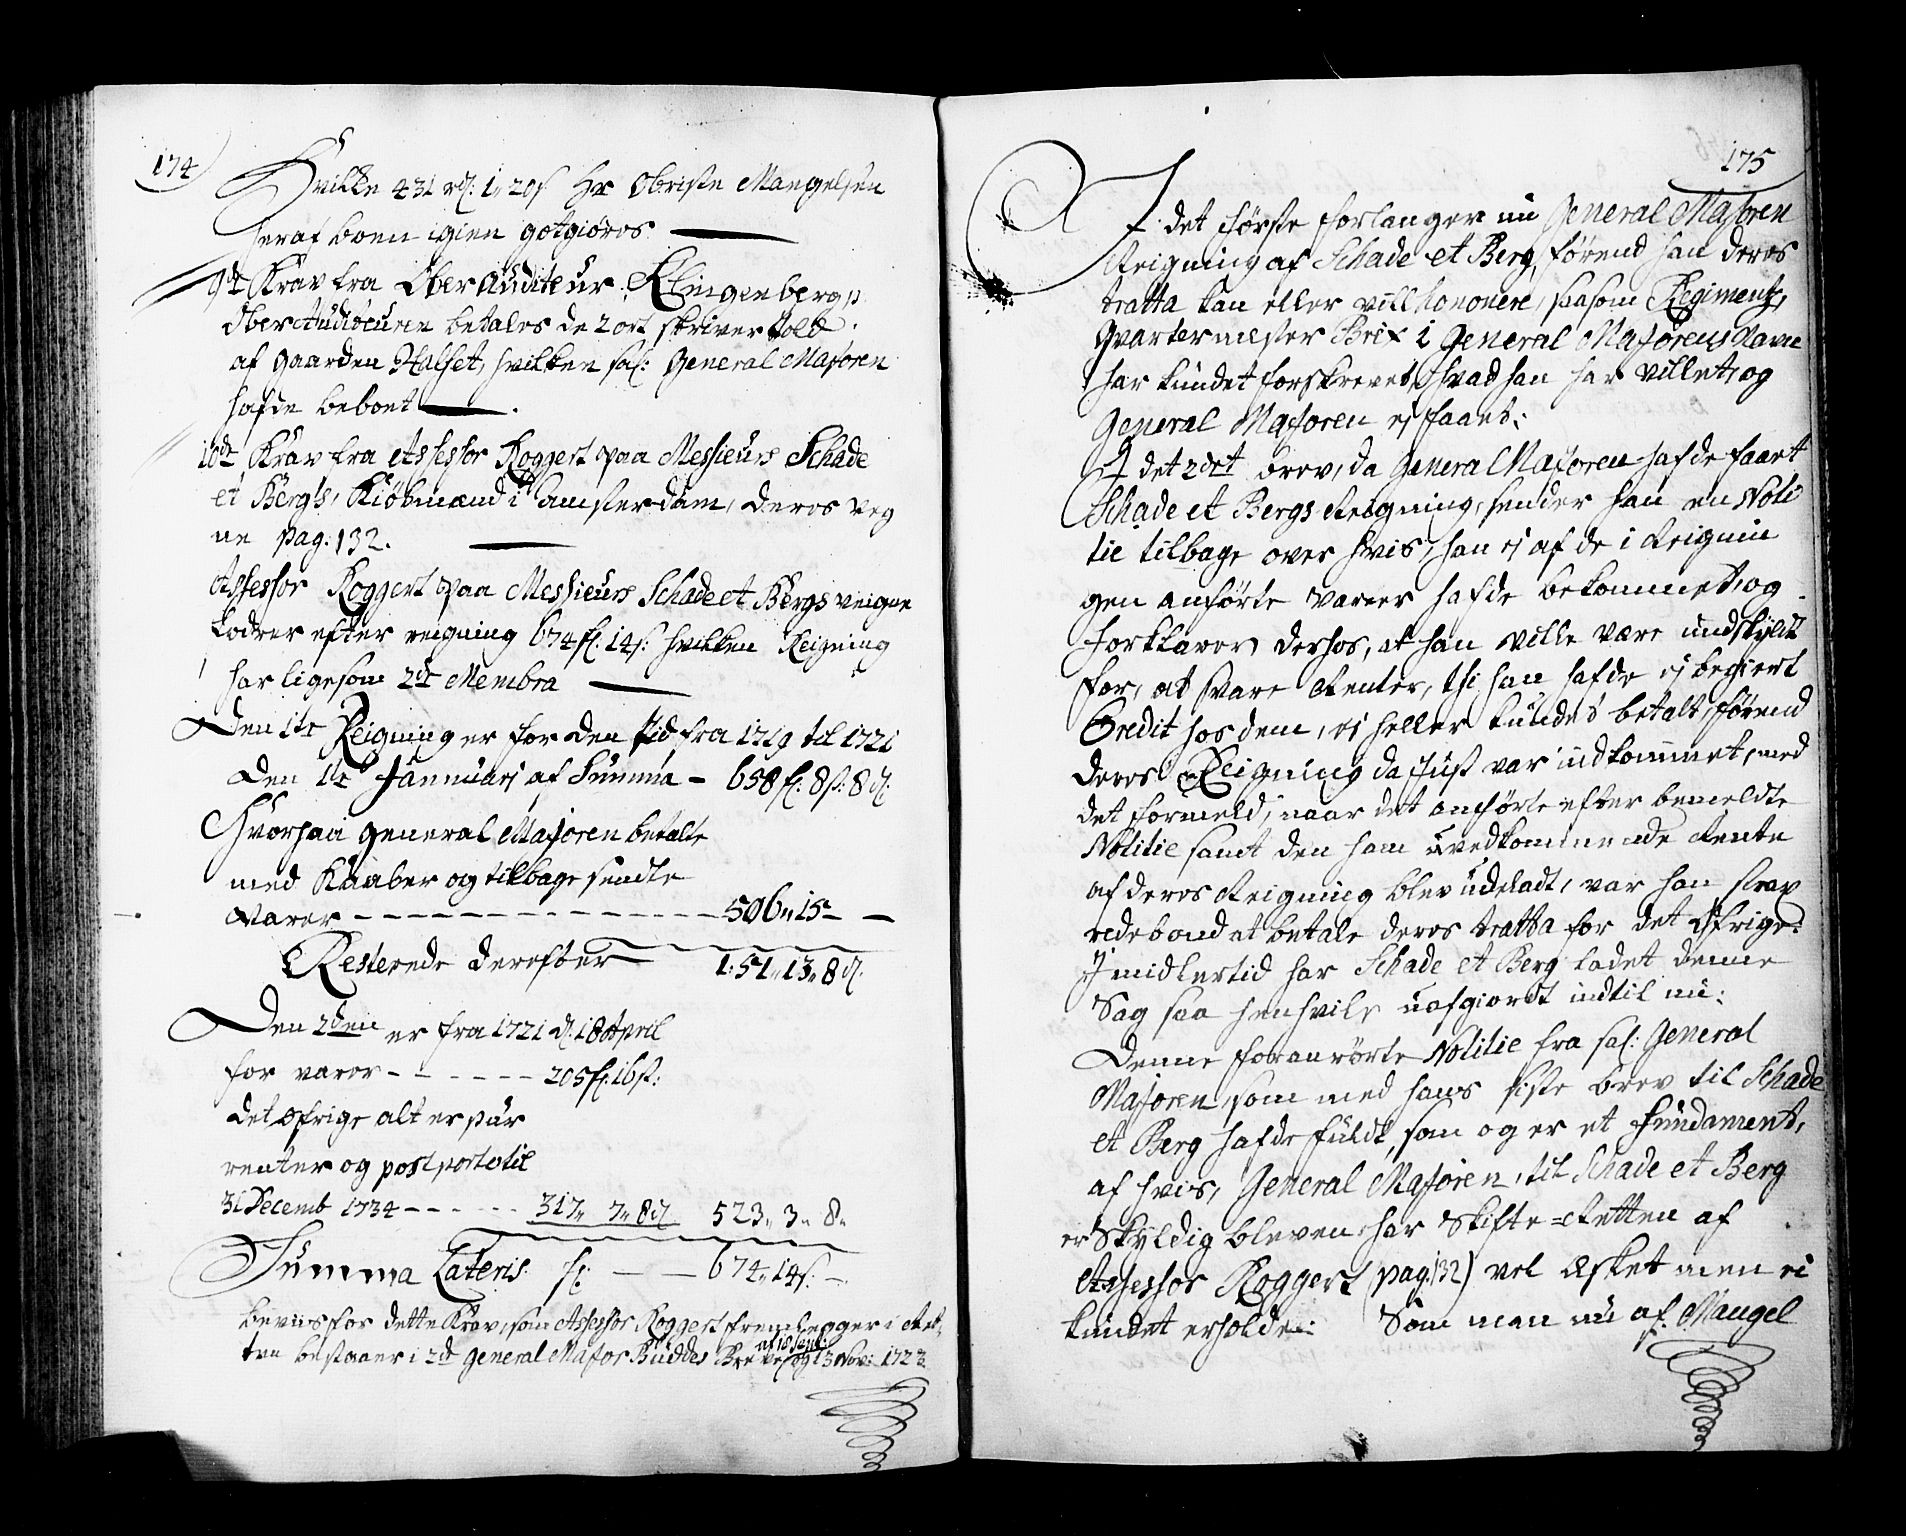 174
Hvilke 431 rd: 1„ 20s Hr Obriste Mangelsen
heraf boen igien gotgiøres
9de Krav fra Ober Auditeur Klingenberg
Ober Auditeuren betales de 2 ort skriver told
af gaarden Halset, hvilken sal: General Majoren
hafde beboet
10de Krav fra Assessor Roggert paa Messieurs Schade
et Bergs, Kiøbmænd i Amsterdam, deres veg
ne pag: 132.
Assessor Roggert paa Messieurs Schade et Bergs veigne
fodrer efter reigning 674 fl: 14 s: hvilken Reigning
har ligesom 2de Membra
Den 1te Reigning er for den tid fra 1719 til 1721
den 1te Januarj af Summa - 658 fl: 8 s: 8 d:
Hvorpaa General Majoren betalte
med Kaaber og tilbage sendte
Varer - - - 506„ 15 -
Resterede derefter 151„ 13„ 8 d.
Den 2den er fra 1721 d: 18 April
for varer - - - 205 fl: 16 s:
det øfrige alt er pur
renter og postporto til
31 Decemb 1734 - - - 317„ 7„ 8 d 523„ 3„ 8„
Summa Lateris fl: - - 674„ 14 s: -
beviis for dette Krav, som Assessor Roggert fremlegger i Ret-
ten bestaaer i 2de General Major Buddes Breve af 18 Sept: og 13 Nov: 1723
175
I det første forlanger nu General Majoren
Reigning af Schade et Berg, førend han deres
tratta kan eller vill honorere, saasom Regiments
Qvartermester Brix i General Majorens Navn
har kundet forskrevet, hvad han har villet, og
General Majoren ej faaet:
I det 2det brev, da General Majoren hafde faaet
Schade et Bergs Reigning, sender han en Noti
tie tilbage over hvis, han ej af de i Reignin
gen anførte varer hafde bekommet, og
forklarer derhos, at han ville være undskyldt
for, at svare Renter, thi han hafde ej begiert
Credit hos dem, ej heller kundet betalt, førend
deres Reigning da just var indkommet, med
det formeld, naar det anførte efter bemeldte
Notitie samt den ham uvedkommende Rente
af deres Reigning blev udeladt, var han strax
redebond at betale deres tratta for det øfrige:
Imidlertid har Schade et Berg ladet denne
Sag saa henhvile uafgiordt indtil nu:
Denne foranrørte Notitie fra sal: General
Majoren, som med hans siste brev til Schade
et Berg hafde fuldt, som og er et Fundament,
af hvis, General Majoren, til Schade et Berg
er Skyldig bleven har Skifte-Retten af
Assessor Roggert (pag: 132) vel æsket men ei
kundet erholde: Som man nu af Mangel